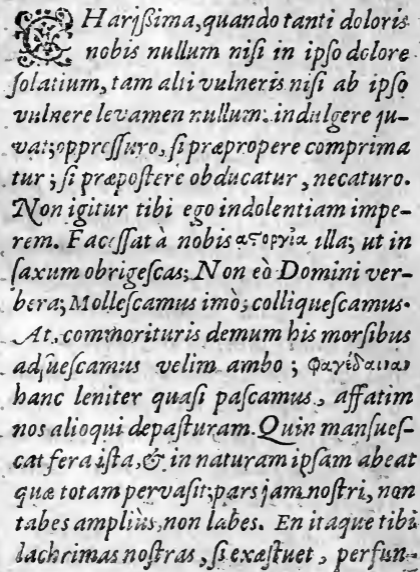 CHariſſima, quando tanti doloris
nobis nullum niſi in ipſo dolore
ſolatium, tam alti vulneris niſi ab ipſo
vulnere levamen nullum: indulgere ju-
vat; oppreſſuro, ſi præpropere comprima
tur; ſi præpoſtere obducatur, necaturo.
Non igitur tibi ego indolentiam impe-
rem. Faceſſat à nobis αϛοργία illa; ut in
ſaxum obrigeſcas; Non eò Domini ver-
bera; Molleſcamus imò; colliqueſcamus.
At, commorituris demum his morſibus
adſueſcamus velim ambo; φαγέδαιναν
hanc leniter quaſi paſcamus, affatim
nos alioqui depaſturam. Quin manſueſ-
cat fera iſta, & in naturam ipſam abeat
quæ totam pervaſit; pars jam noſtri, non
tabes ampliùs, non labes. En itaque tibi
lachrimas noſtras, ſi exæſtuet, perfun-